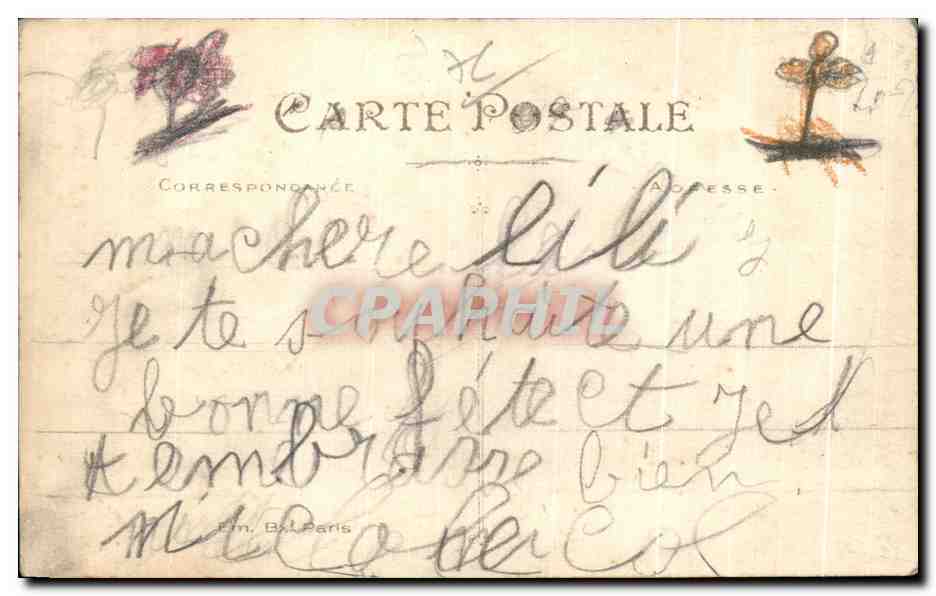 CARTE POSTALE
CORRESPONDANCE
ADRESSE
ma chere lili
Je te souhaite une
bonne fête et je
t embrasse bien
Em. B. Paris
CPAPHIL